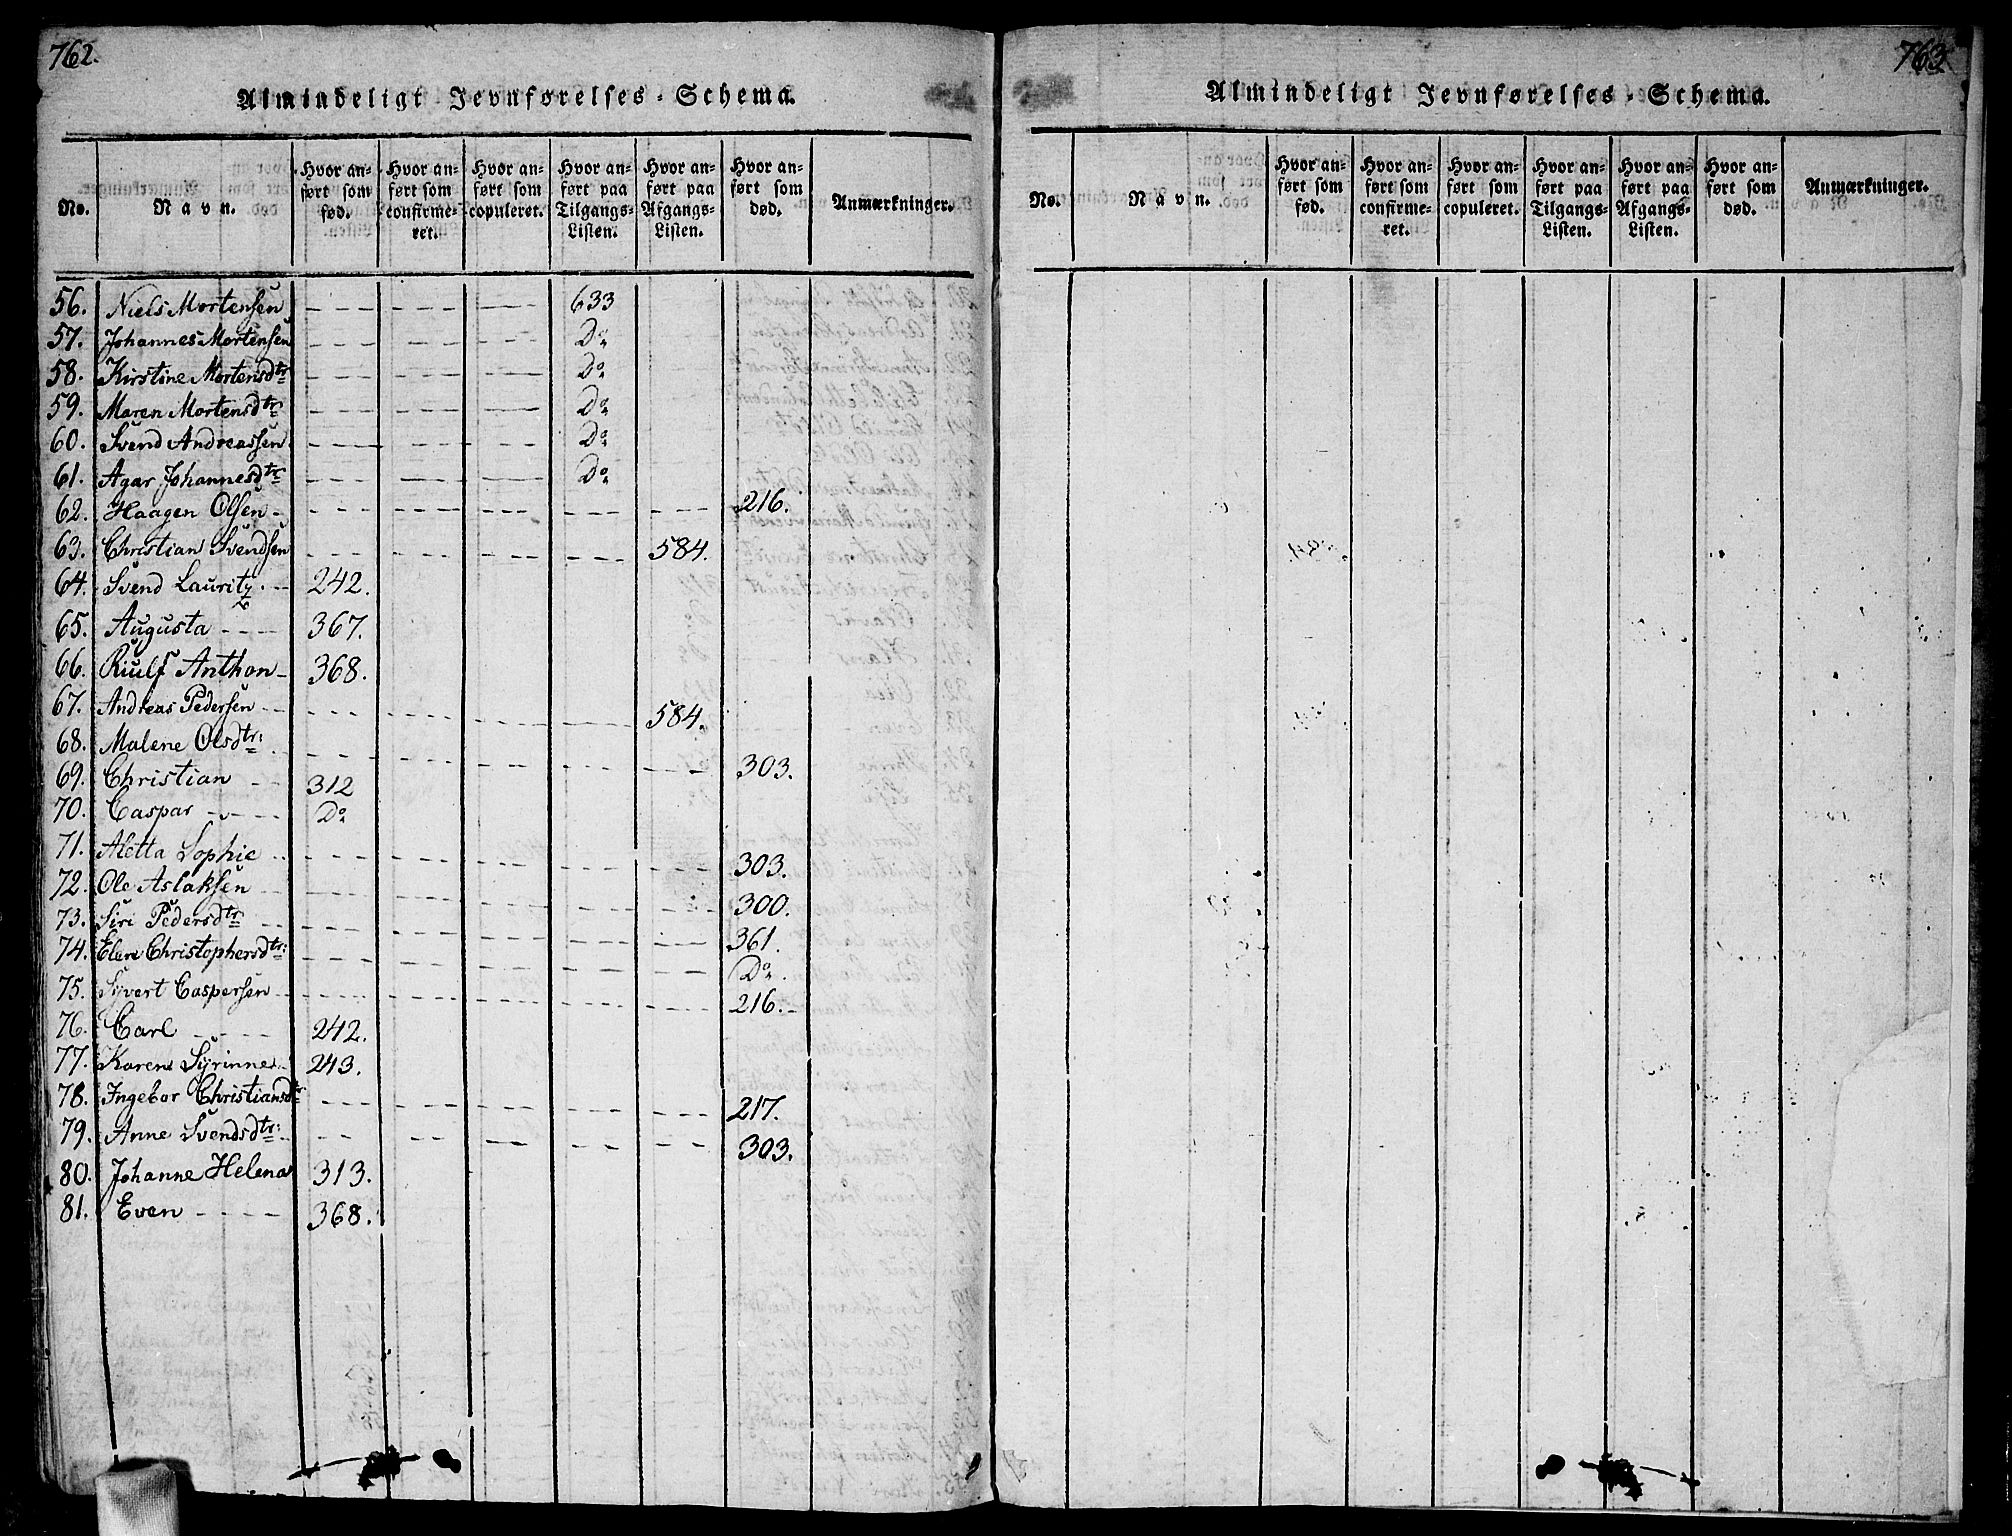 762.
Almindeligt Jevnførelses-Schema.
No. | Navn. | Hvor anført som fød. | Hvor anført som confirmeret. | Hvor anført som copuleret. | Hvor anført paa Tilgangs-Listen. | Hvor anført paa Afgangs-Listen. | Hvor anført som død. | Anmærkninger.
56. Niels Mortensen - - - 633
57. Johannes Mortensen - - - Do
58. Kirstine Mortensdtr - - - Do
59. Maren Mortensdtr - - - Do
60. Svend Andreassen - - - Do
61. Agar Johannesdtr - - - Do
62. Haagen Olsen - - - - - 216.
63. Christian Svendsen - - - - 584.
64. Svend Lauritz - 242.
65. Augusta - - - 367.
66. Riulf Anthon - 368.
67. Andreas Pedersen - - - - 584.
68. Malene Olsdtr: - - - - - 303.
69. Christian - - 312
70. Caspar - - - Do
71. Aletta Sophie - - - - - 303.
72. Ole Aslaksen - - - - - 300.
73. Siri Pedersdtr - - - - - 361.
74. Elen Christophersdtr: - - - - - Do.
75. Syvert Caspersen - - - - - 216.
76. Carl - - - 242.
77. Karen Syrinne - 243.
78. Ingebor Christiansdtr - - - - - 217.
79. Anne Svendsdtr: - - - - - 303.
80. Johanne Helena 313.
81. Even - - - - 368.
763
Almindeligt Jevnførelses-Schema.
No. | Navn. | Hvor anført som fød. | Hvor anført som confirmeret. | Hvor anført som copuleret. | Hvor anført paa Tilgangs-Listen. | Hvor anført paa Afgangs-Listen. | Hvor anført som død. | Anmærkninger.